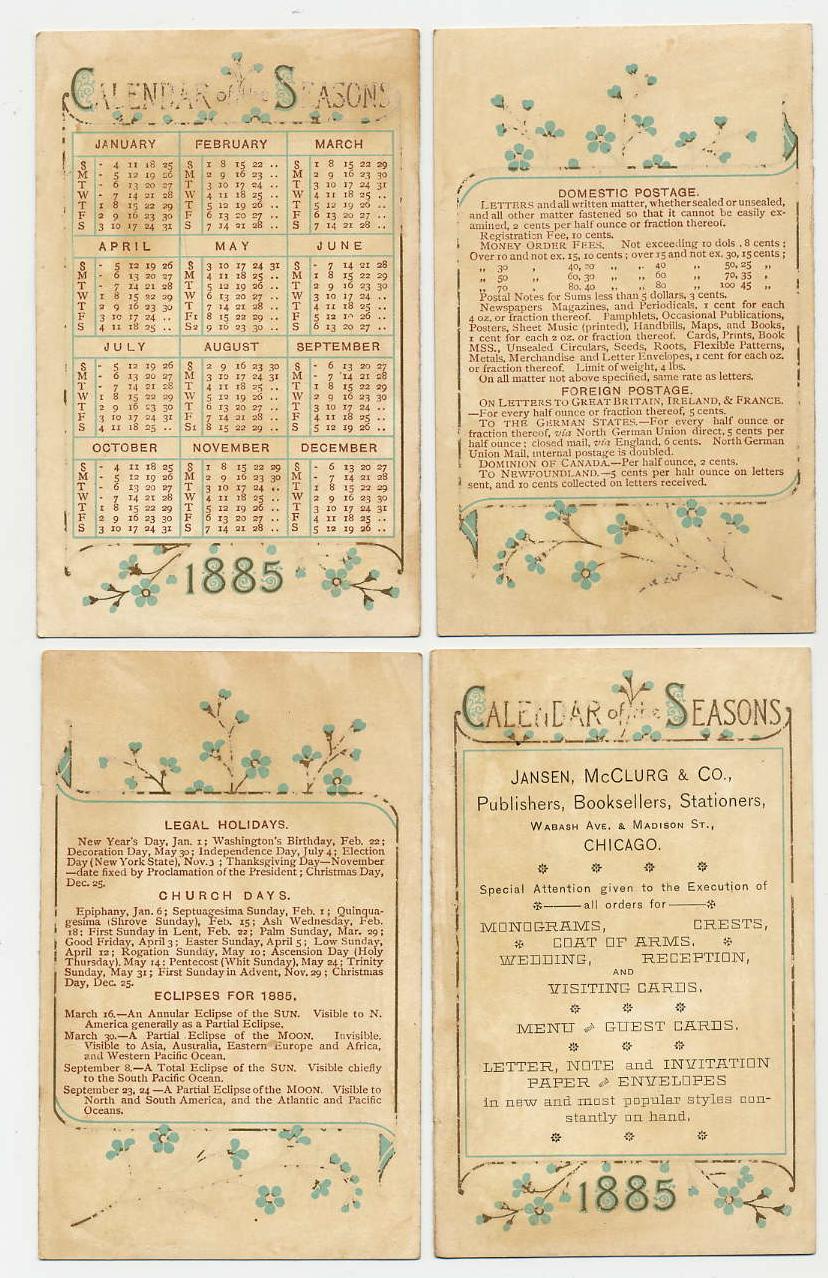 CALENDAR of the SEASONS
JANUARY FEBRUARY MARCH
S - 4 11 18 25 S 1 8 15 22 .. S 1 8 15 22 29
M - 5 12 19 26 M 2 9 16 23 .. M 2 9 16 23 30
T - 6 13 20 27 T 3 10 17 24 .. T 3 10 17 24 31
W - 7 14 21 28 W 4 11 18 25 .. W 4 11 18 25 ..
T 1 8 15 22 29 T 5 12 19 26 .. T 5 12 19 26 ..
F 2 9 16 23 30 F 6 13 20 27 .. F 6 13 20 27 ..
S 3 10 17 24 31 S 7 14 21 28 .. S 7 14 21 28 ..
APRIL MAY JUNE
S - 5 12 19 26 S 3 10 17 24 31 S - 7 14 21 28
M - 6 13 20 27 M 4 11 18 25 .. M 1 8 15 22 29
T - 7 14 21 28 T 5 12 19 26 .. T 2 9 16 23 30
W 1 8 15 22 29 W 6 13 20 27 .. W 3 10 17 24 ..
T 2 9 16 23 30 T 7 14 21 28 .. T 4 11 18 25 ..
F 3 10 17 24 .. F1 8 15 22 29 .. F 5 12 19 26 ..
S 4 11 18 25 .. S2 9 16 23 30 .. S 6 13 20 27 ..
JULY AUGUST SEPTEMBER
S - 5 12 19 26 S 2 9 16 23 30 S - 6 13 20 27
M - 6 13 20 27 M 3 10 17 24 31 M - 7 14 21 28
T - 7 14 21 28 T 4 11 18 25 .. T 1 8 15 22 29
W 1 8 15 22 29 W 5 12 19 26 .. W 2 9 16 23 30
T 2 9 16 23 30 T 6 13 20 27 .. T 3 10 17 24 ..
F 3 10 17 24 31 F 7 14 21 28 .. F 4 11 18 25 ..
S 4 11 18 25 .. S1 8 15 22 29 .. S 5 12 19 26 ..
OCTOBER NOVEMBER DECEMBER
S - 4 11 18 25 S 1 8 15 22 29 S - 6 13 20 27
M - 5 12 19 26 M 2 9 16 23 30 M - 7 14 21 28
T - 6 13 20 27 T 3 10 17 24 .. T 1 8 15 22 29
W - 7 14 21 28 W 4 11 18 25 .. W 2 9 16 23 30
T 1 8 15 22 29 T 5 12 19 26 .. T 3 10 17 24 31
F 2 9 16 23 30 F 6 13 20 27 .. F 4 11 18 25 ..
S 3 10 17 24 31 S 7 14 21 28 .. S 5 12 19 26 ..
1885
DOMESTIC POSTAGE.
LETTERS and all written matter, whether sealed or unsealed,
and all other matter fastened so that it cannot be easily ex-
amined, 2 cents per half ounce or fraction thereof.
Registration Fee, 10 cents.
MONEY ORDER FEES. Not exceeding 10 dols., 8 cents;
Over 10 and not ex. 15, 10 cents; over 15 and not ex. 30, 15 cents;
„ 30 „ 40, 20 „ „ 40 „ 50, 25 „
„ 50 „ 60, 30 „ „ 60 „ 70, 35 „
„ 70 „ 80, 40 „ „ 80 „ 100 45 „
Postal Notes for Sums less than 5 dollars, 3 cents.
Newspapers Magazines, and Periodicals, 1 cent for each
4 oz. or fraction thereof. Pamphlets, Occasional Publications,
Posters, Sheet Music (printed), Handbills, Maps, and Books,
1 cent for each 2 oz. or fraction thereof. Cards, Prints, Book
MSS., Unsealed Circulars, Seeds, Roots, Flexible Patterns,
Metals, Merchandise and Letter Envelopes, 1 cent for each oz.
or fraction thereof. Limit of weight, 4 lbs.
On all matter not above specified, same rate as letters.
FOREIGN POSTAGE.
ON LETTERS TO GREAT BRITAIN, IRELAND, & FRANCE.
—For every half ounce or fraction thereof, 5 cents.
TO THE GERMAN STATES.—For every half ounce or
fraction thereof, via North German Union direct, 5 cents per
half ounce; closed mail, via England, 6 cents. North German
Union Mail, internal postage is doubled.
DOMINION OF CANADA.—Per half ounce, 2 cents.
TO NEWFOUNDLAND.—5 cents per half ounce on letters
sent, and 10 cents collected on letters received.
LEGAL HOLIDAYS.
New Year's Day, Jan. 1; Washington's Birthday, Feb. 22;
Decoration Day, May 30; Independence Day, July 4; Election
Day (New York State), Nov. 3; Thanksgiving Day—November
—date fixed by Proclamation of the President; Christmas Day,
Dec. 25.
CHURCH DAYS.
Epiphany, Jan. 6; Septuagesima Sunday, Feb. 1; Quinqua-
gesima (Shrove Sunday), Feb. 15; Ash Wednesday, Feb.
18; First Sunday in Lent, Feb. 22; Palm Sunday, Mar. 29;
Good Friday, April 3; Easter Sunday, April 5; Low Sunday,
April 12; Rogation Sunday, May 10; Ascension Day (Holy
Thursday), May 14; Pentecost (Whit Sunday), May 24; Trinity
Sunday, May 31; First Sunday in Advent, Nov. 29; Christmas
Day, Dec. 25.
ECLIPSES FOR 1885.
March 16.—An Annular Eclipse of the SUN. Visible to N.
America generally as a Partial Eclipse.
March 30.—A Partial Eclipse of the MOON. Invisible.
Visible to Asia, Australia, Eastern Europe and Africa,
and Western Pacific Ocean.
September 8.—A Total Eclipse of the SUN. Visible chiefly
to the South Pacific Ocean.
September 23, 24—A Partial Eclipse of the MOON. Visible to
North and South America, and the Atlantic and Pacific
Oceans.
CALENDAR of the SEASONS
JANSEN, McCLURG & CO.,
Publishers, Booksellers, Stationers,
WABASH AVE. & MADISON ST.,
CHICAGO.
Special Attention given to the Execution of
all orders for
MONOGRAMS, CRESTS,
COAT OF ARMS,
WEDDING, RECEPTION,
AND
VISITING CARDS,
MENU and GUEST CARDS.
LETTER, NOTE and INVITATION
PAPER and ENVELOPES
in new and most popular styles con-
stantly on hand.
1885